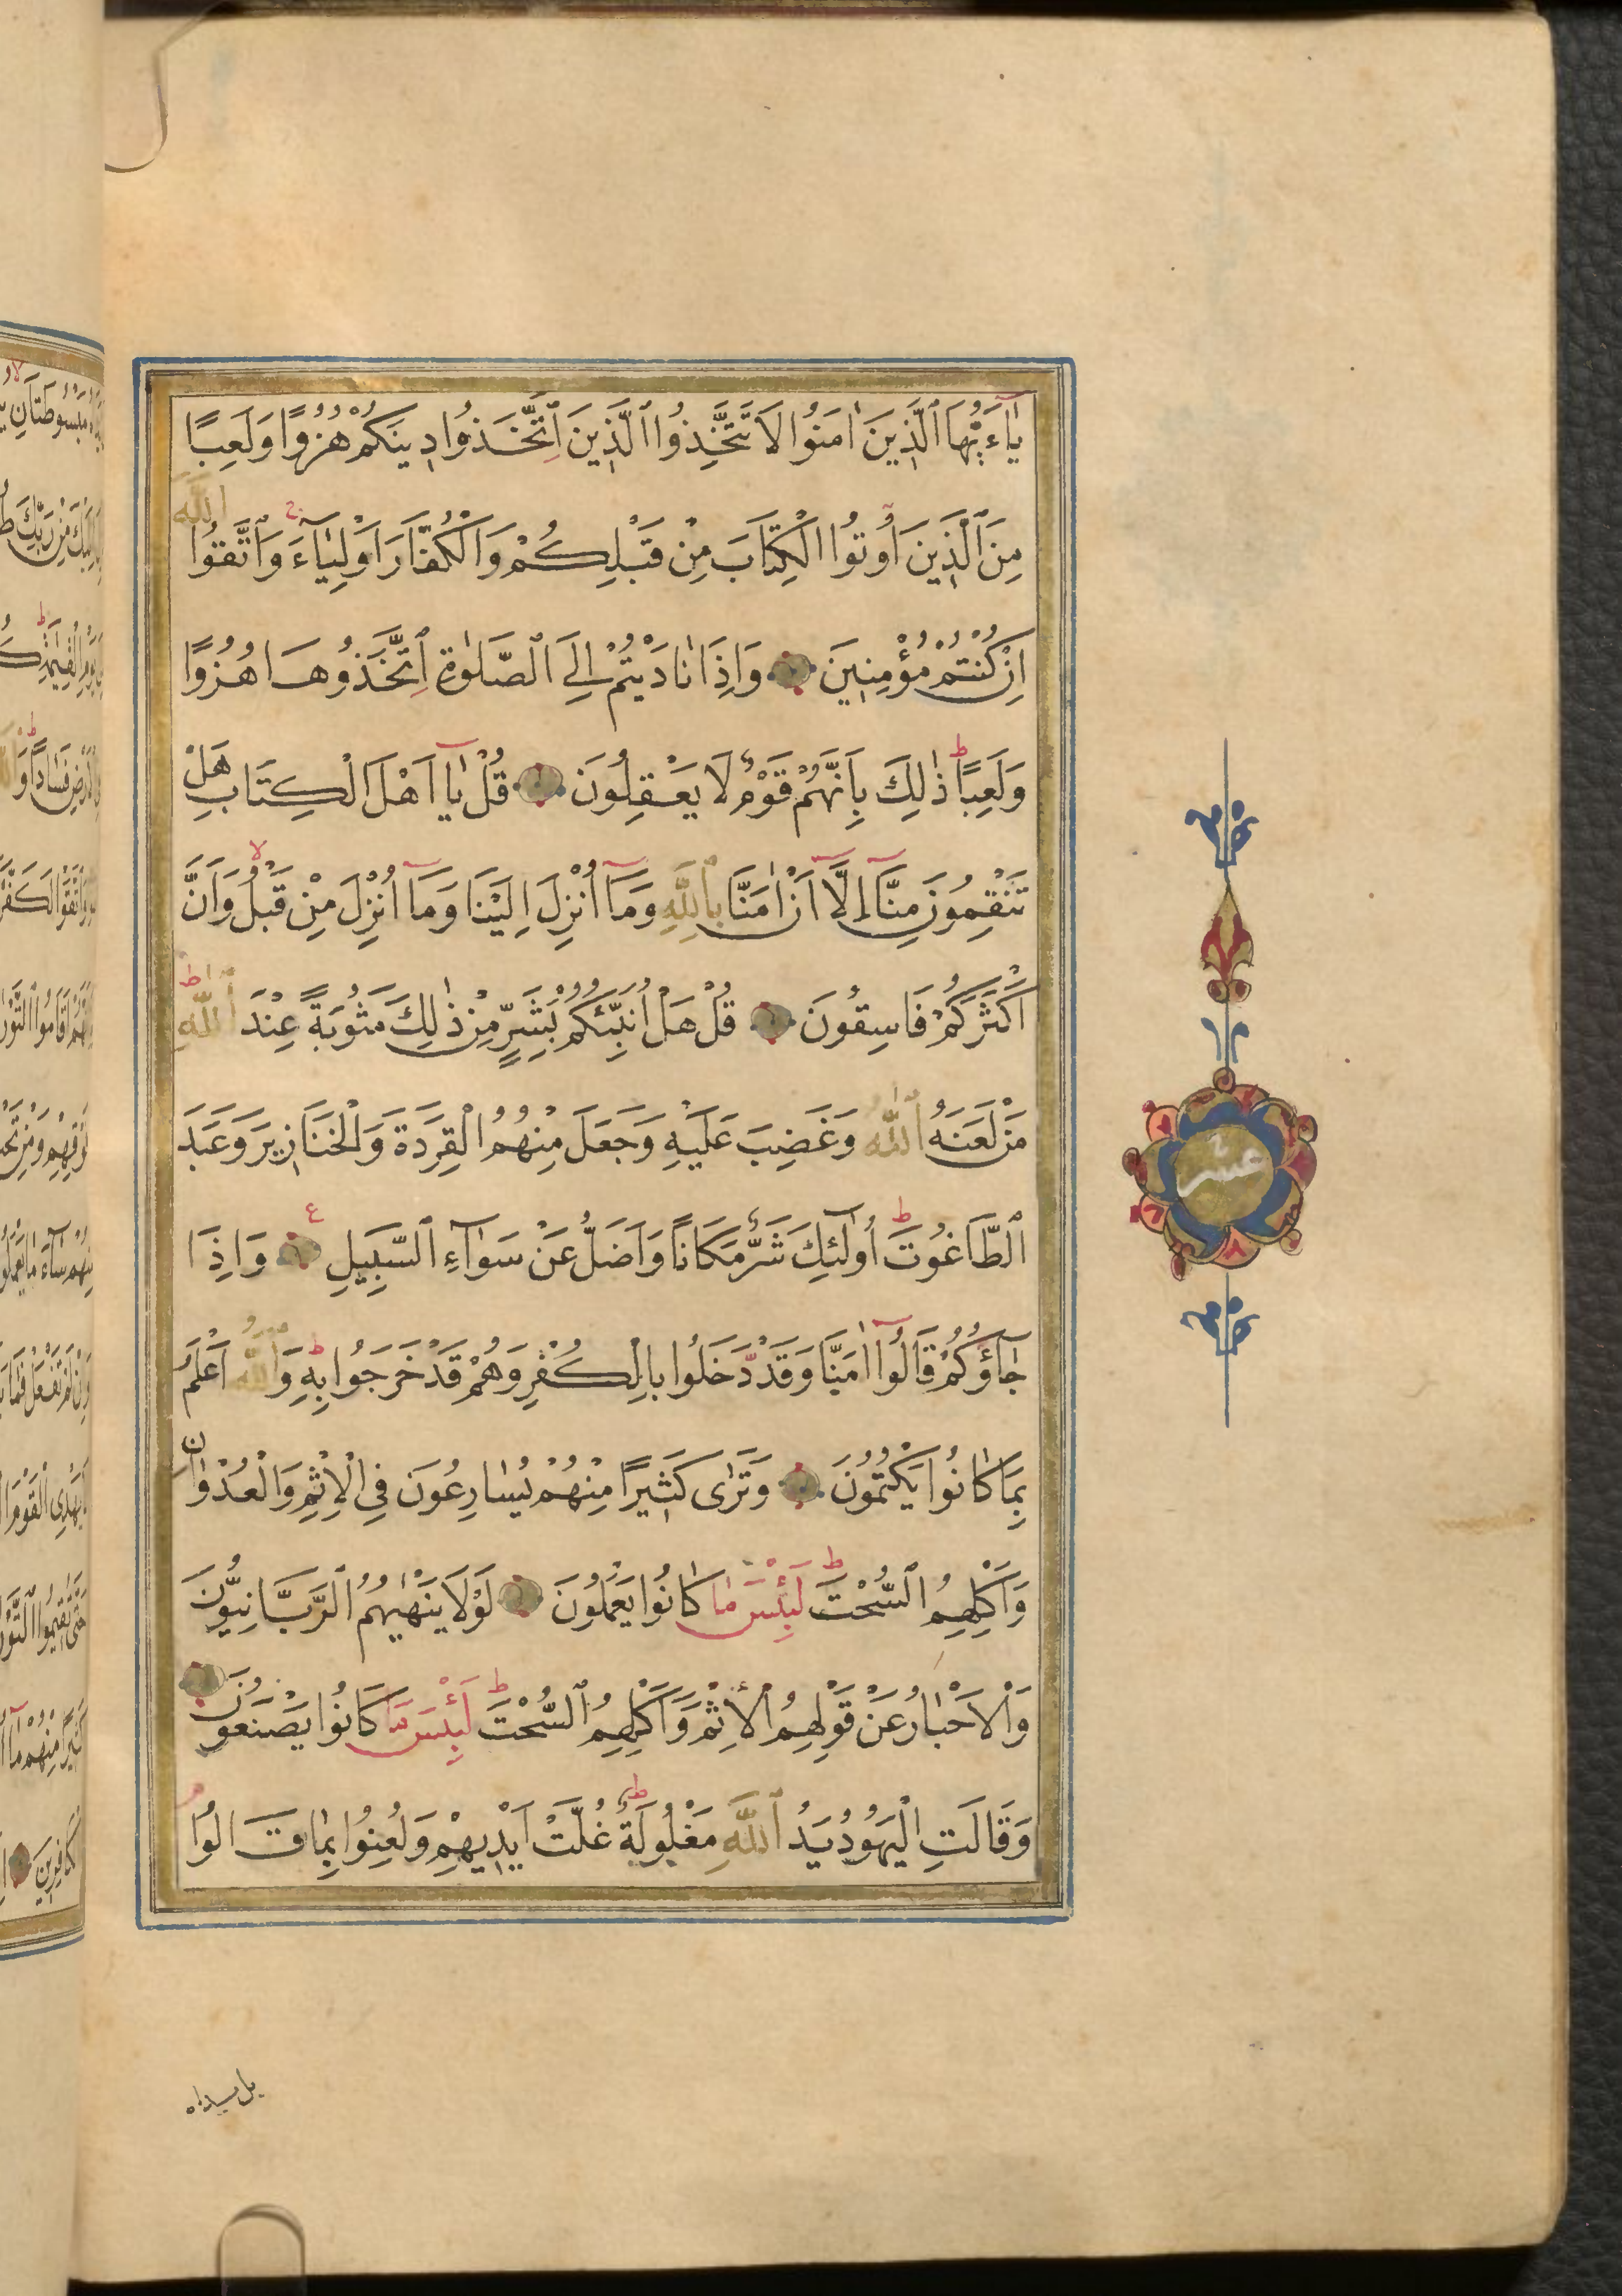 يَا ءَيُّهَا ٱلَّذِينَ اٰمَنُوا لَا تَتَّخِذُوا ٱلَّذِينَ ٱتَّخَذُوا دِينَكُمْ هُزُوًا وَلَعِبًا
مِنَ ٱلَّذِينَ اُوتُوا الْكِتَابَ مِنْ قَبْلِكُمْ وَالْكُفَّارَ اَوْلِيَاءَ ج وَاتَّقُوا اللَّهَ
اِنْ كُنْتُمْ مُؤْمِنِينَ وَاِذَا نَادَيْتُمْ اِلَى ٱلصَّلٰوةِ ٱتَّخَذُوهَا هُزُوًا
وَلَعِبًا ط ذٰلِكَ بِاَنَّهُمْ قَوْمٌ لَا يَعْقِلُونَ قُلْ يَا اَهْلَ الْكِتَابِ هَلْ
تَنْقِمُونَ مِنَّا اِلَّا اَنْ اٰمَنَّا بِٱللَّهِ وَمَا اُنْزِلَ اِلَيْنَا وَمَا اُنْزِلَ مِنْ قَبْلُ لا وَاَنَّ
اَكْثَرَكُمْ فَاسِقُونَ قُلْ هَلْ اُنَبِّئُكُمْ بِشَرٍّ مِنْ ذٰلِكَ مَثُوبَةً عِنْدَ ٱللّٰهِ ط
مَنْ لَعَنَهُ ٱللّٰهُ وَغَضِبَ عَلَيْهِ وَجَعَلَ مِنْهُمُ الْقِرَدَةَ وَالْخَنَازِيرَ وَعَبَدَ
ٱلطَّاغُوتَ ط اُولٰئِكَ شَرٌّ مَكَانًا وَاَضَلُّ عَنْ سَوَاءِ ٱلسَّبِيلِ ع وَاِذَا
جَاؤُكُمْ قَالُوا اٰمَنَّا وَقَدْ دَّخَلُوا بِالْكُفْرِ وَهُمْ قَدْ خَرَجُوا بِهِ ط وَٱللّٰهُ اَعْلَمُ
بِمَا كَانُوا يَكْتُمُونَ وَتَرٰى كَثِيرًا مِنْهُمْ يُسَارِعُونَ فِي الْاِثْمِ وَالْعُدْوَانِ
وَاَكْلِهِمُ ٱلسُّحْتَ ط لَبِئْسَ مَا كَانُوا يَعْمَلُونَ لَوْلَا يَنْهٰيهُمُ ٱلرَّبَّانِيُّونَ
وَالْاَحْبَارُ عَنْ قَوْلِهِمُ الْاِثْمَ وَاَكْلِهِمُ ٱلسُّحْتَ ط لَبِئْسَ مَا كَانُوا يَصْنَعُونَ
وَقَالَتِ الْيَهُودُ يَدُ ٱللَّهِ مَغْلُولَةٌ ط غُلَّتْ اَيْدِيهِمْ وَلُعِنُوا بِمَا قَالُوا م
عشر
بل يداه